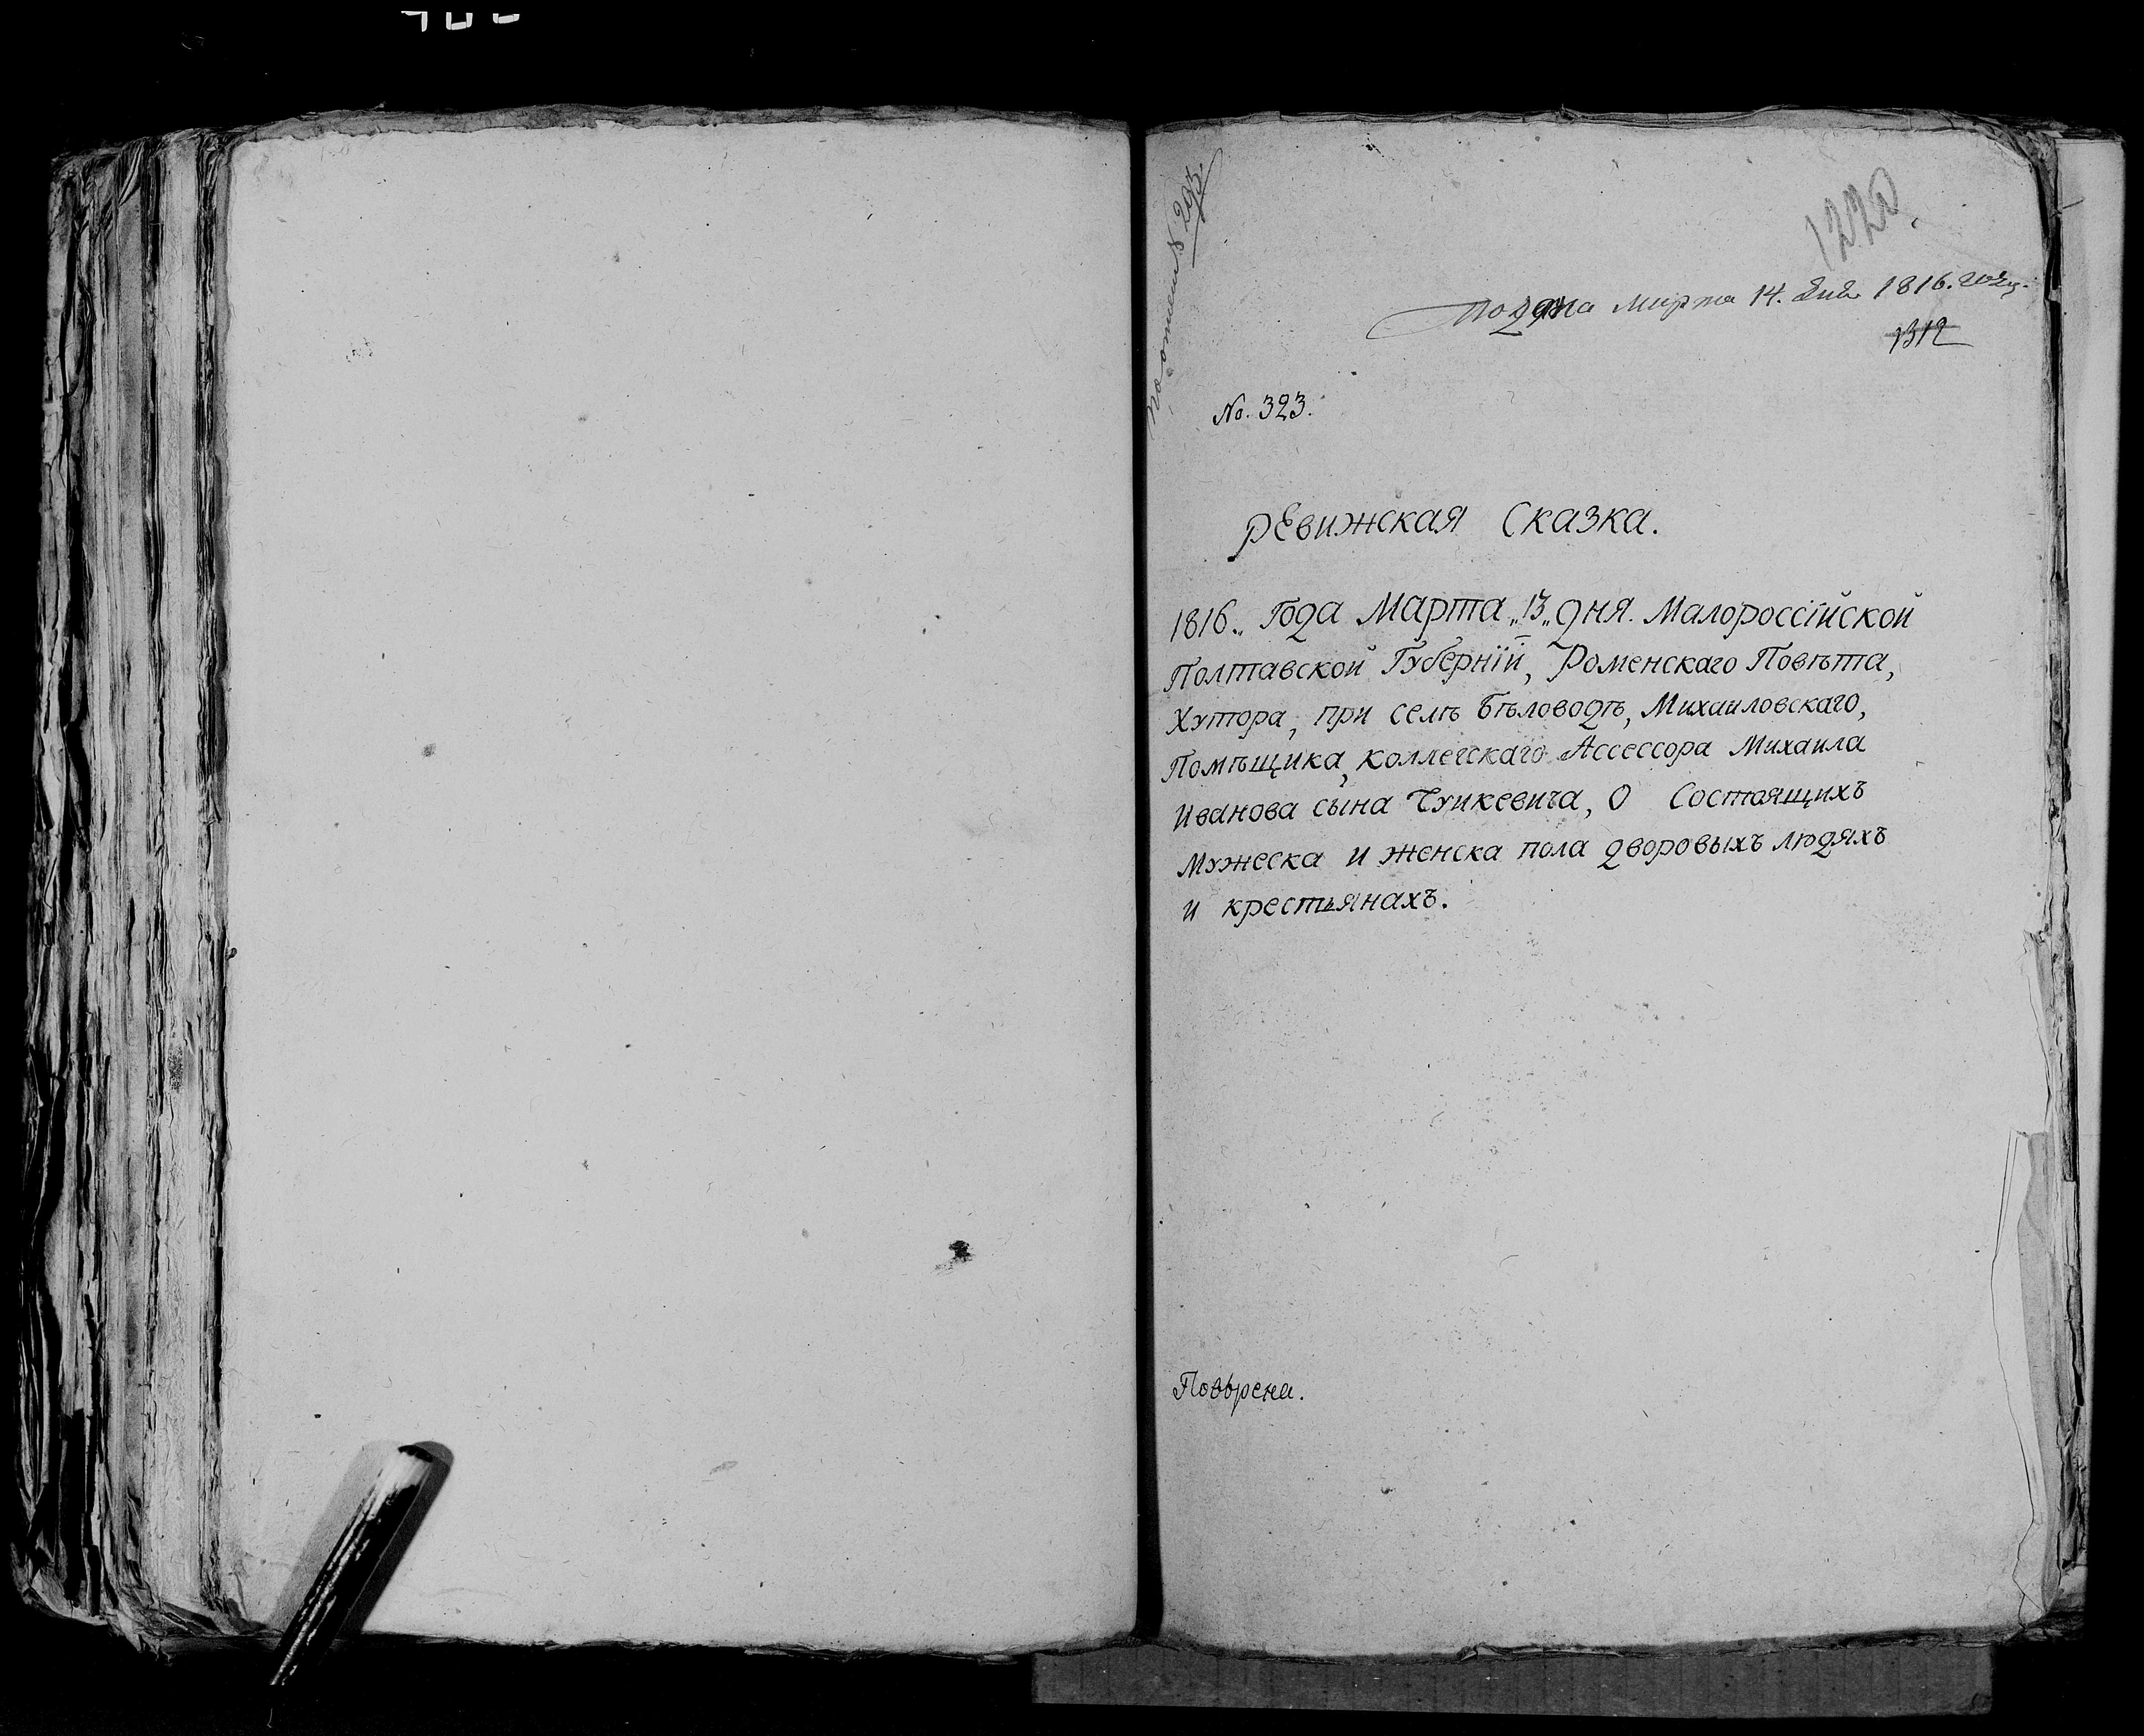 по описи № 293
1220
Подана марта 14. дня 1816. году.
1312
No. 323.
РЕвижская Сказка.
1816„ Года Марта „13„ дня. Малороссїйской
Полтавской Губернїй, Роменскаго Повѣта,
Хутора, при селѣ Бѣловодѣ, Михаиловскаго,
Помѣщика, коллегскаго Ассессора Михаила
Иванова сына Чуйкевича, О Состоящихъ
Мужеска и женска пола дворовыхъ людяхъ
и крестьянахъ.
Повѣрена.